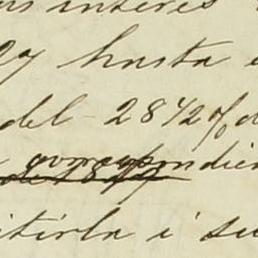 interes
27 hasta
del 28 1/2 % d
correspondien
itirla i su